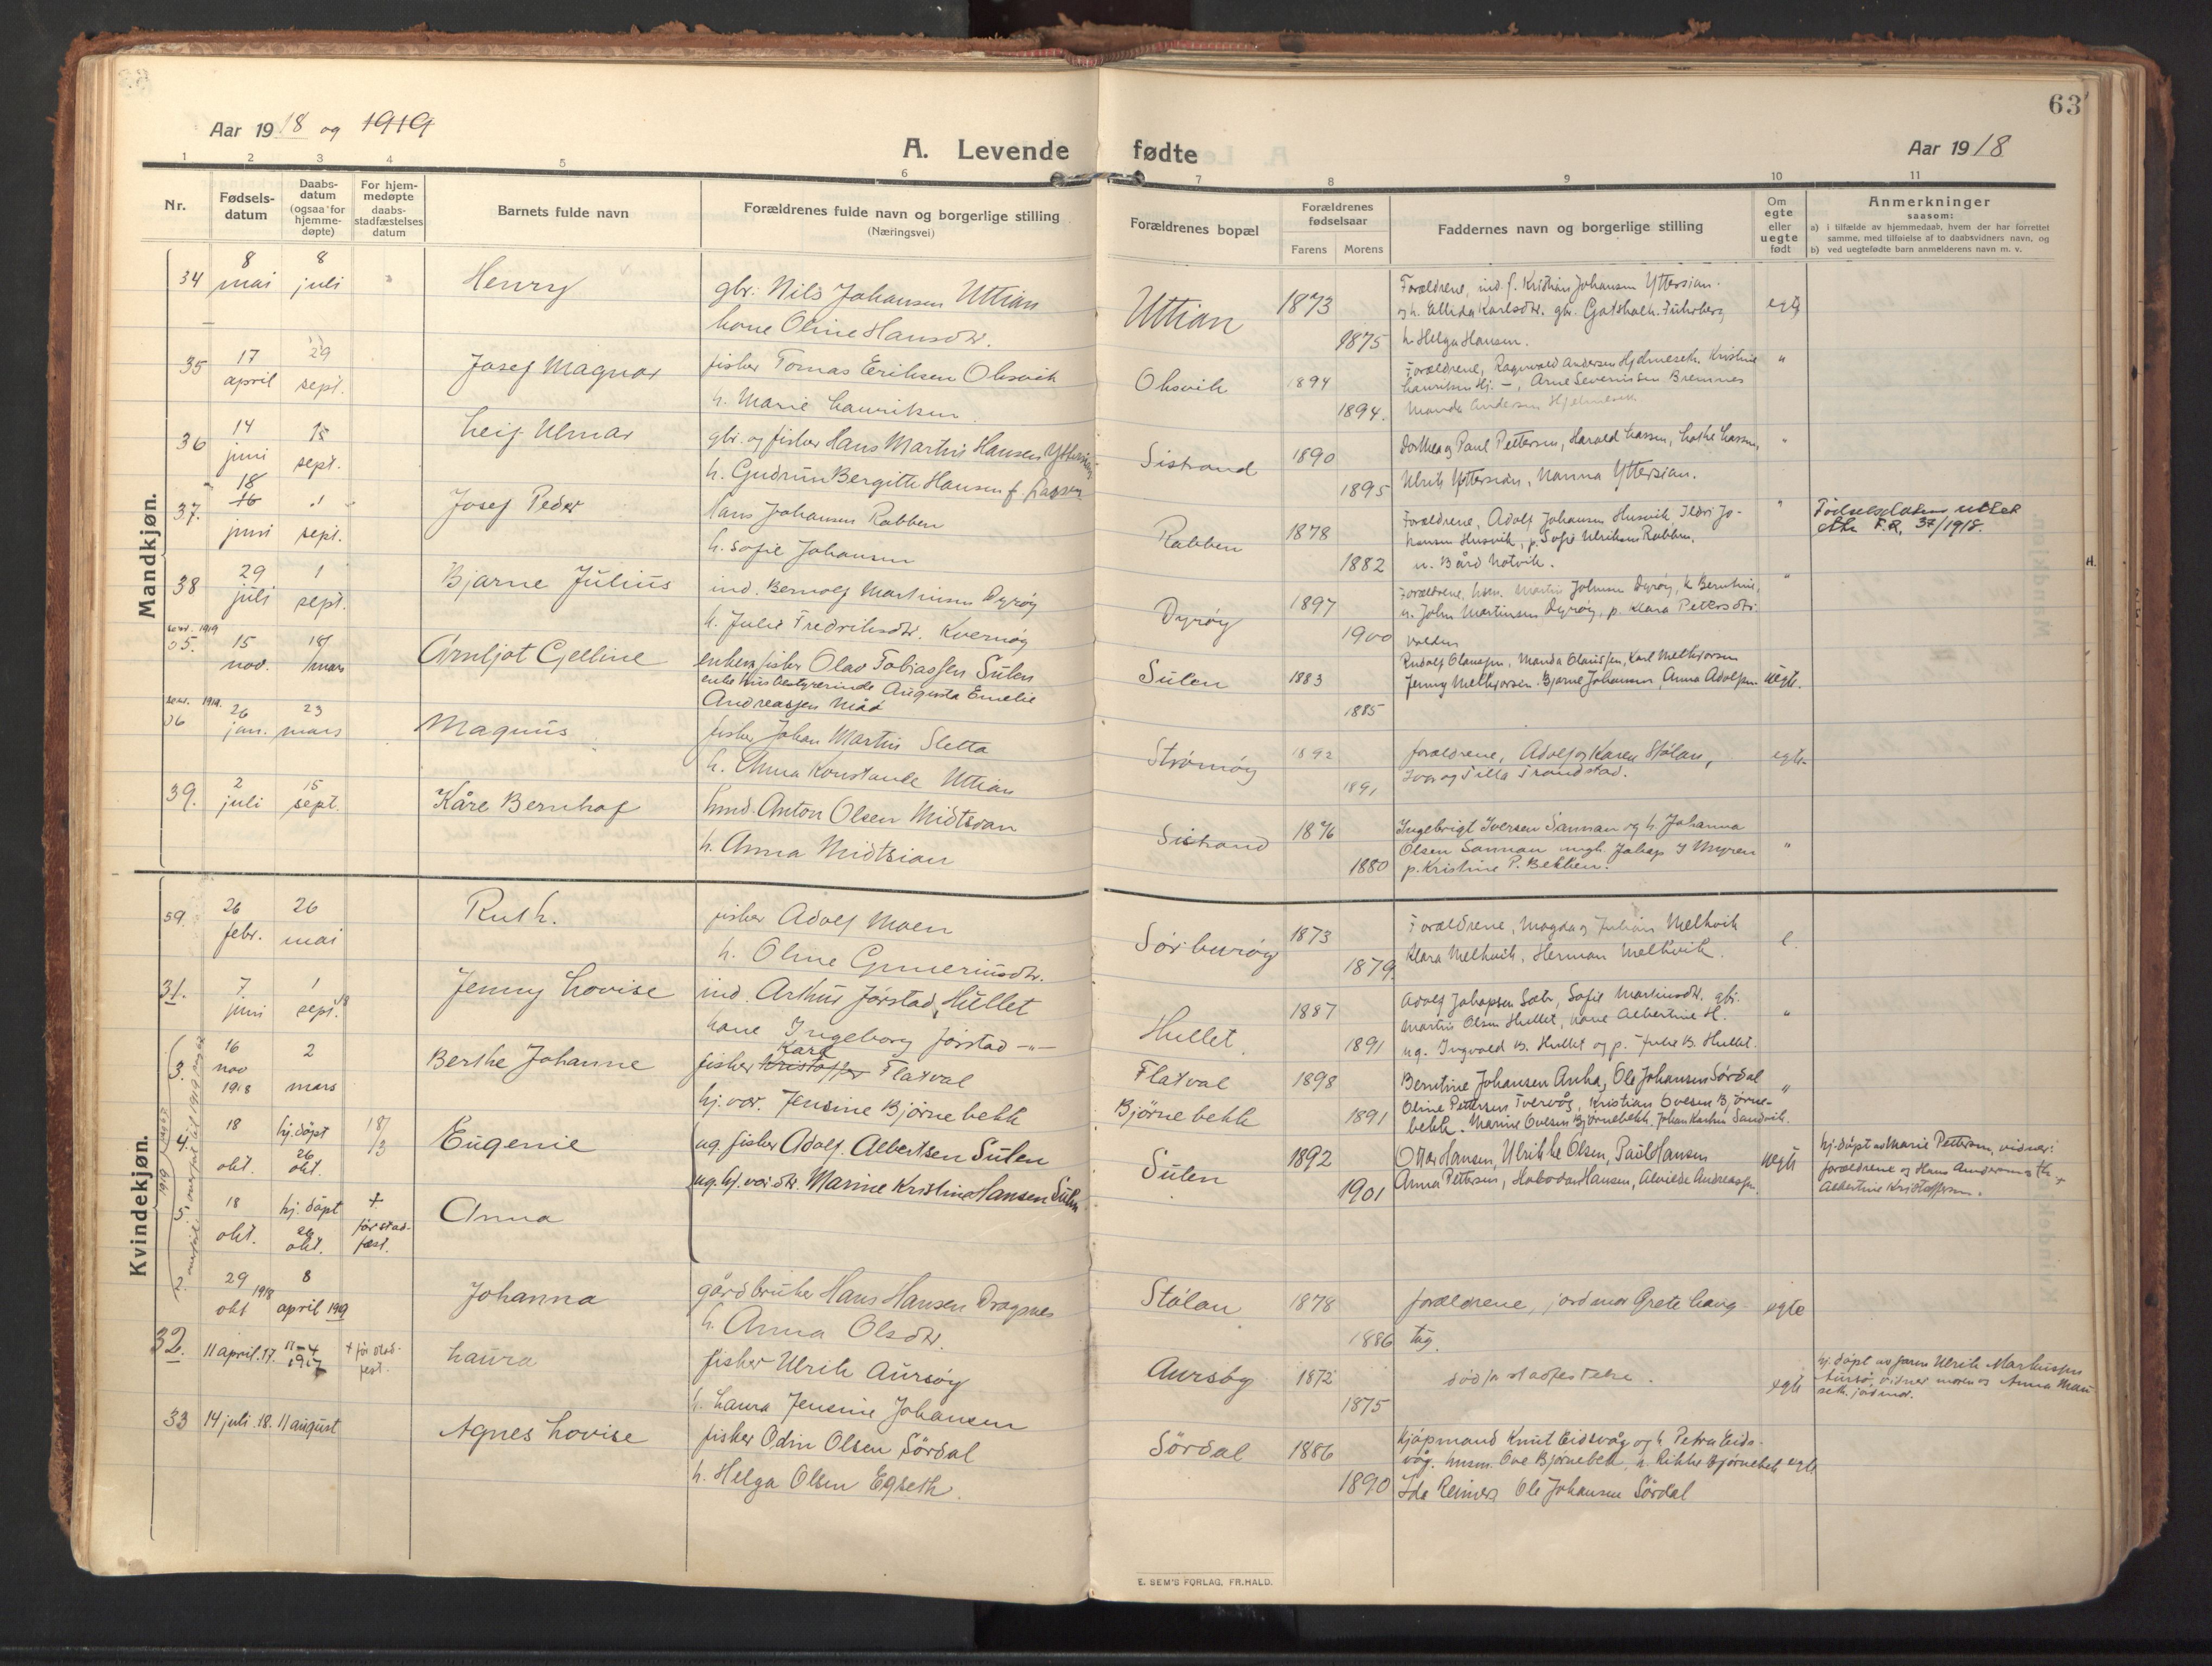 63
Aar 1918 og 1919
A. Levende fødte
Aar 1918
1 2 3 4 5 6 7 8 9 10 11
Nr.
Fødsels-
datum
Daabs-
datum
(ogsaa for
hjemme-
døpte)
For hjem-
medøpte
daabs-
stadfæstelses
datum
Barnets fulde navn
Forældrenes fulde navn og borgerlige stilling
(Næringsvei)
Forældrenes bopæl
Forældrenes
fødselsaar
Farens Morens
Faddernes navn og borgerlige stilling
Om
egte
eller
uegte
født
Anmerkninger
saasom:
a) i tilfælde av hjemmedaab, hvem der har forrettet
samme, med tilføielse af to daabsvidners navn, og
b) ved uegtefødte barn anmelderens navn m. v.
Mandkjøn.
34 8 mai 8 juli Henry
gbr. Nils Johansen Uttian
kone Oline Hansdtr.
Uttian 1873 1875
Forældrene, ind. f. Kristian Johansen Yttersian.
og h. Ellida Karlsdtr. gbr. Gotshalk Fuhrberg
h. Helga Hansen.
egte
35 17 april 29 sept. Josef Magnar
fisker Tomas Eriksen Oksvik
h. Marie Lauriksen
Oksvik 1894 1894.
Forældrene, Ragnvald Andersen Hjelmeseth, Kristine
Lauriksen Hj. –, Arne Severinsen Bremnes
Manda Andersen Hjelmeseth
"
36 14 juni 15 sept. Leif Ulmar
gbr. og fisker Hans Martin Hansen Yttersian
h. Gudrun Bergitte Hansen f. Lassen
Sistrand 1890 1895
Dorthea og Paul Pettersen, Harald Lassen, Lothe Lassen,
Ulrik Yttersian, Nanna Yttersian.
"
37. 18 16 juni 1 sept. Josef Peder
Hans Johansen Rabben
h. Sofie Johansen
Rabben 1878 1882
Forældrene, Adolf Johansen Husvik, Ildri Jo-
hansen Husvik, p. Sofie Ulriksen Rabben,
u. Bård Notvik.
"
Fødselsdatum rettet
etter F.R. 37/1918.
38 29 juli 1 sept. Bjarne Julius
ind. Bernolf Martinsen Dyrøy
h. Julie Fredriksdtr. Kvernøy
Dyrøy 1897 1900
Forældrene, husm. Martin Johnsen Dyrøy, h. Berntine,
u. John Martinsen Dyrøy, p. Klara Pettersdtr.
Valden
"
1919
5. 15 nov. 18 mars Arnljot Gelline
enkem. fisker Olav Tobiassen Sulen
enke husbestyrerinde Augusta Emelie
Andreassen
Sulen 1883 1885
Rudolf Olaussen, Manda Olaussen, Karl Melkiorsen
Jenny Melkiorsen. Bjarne Johansen, Anna Adolfsen
uegte.
1919.
6 26 jan. 23 mars Magnus
fisker Johan Martin Sletta
h. Anna Konstanse Uttian
Strømøy 1892 1891
forældrene, Adolf og Karen Stølan,
Ivar og Tilla Strandstad.
egte
39. 2 juli 15 sept. Kåre Bernhof
husmd. Anton Olsen Midtsian
h. Anna Midtsian
Sistrand 1876 1880
Ingebrigt Iversen Sannan og h. Johanna
Olsen Sannan ungk. Johap J Myren
p. Kristine P. Bekken.
"
Kvindekjøn.
39. 26 febr. 26 mai Ruth.
fisker Adolf Moen
h. Oline Gunneriusdtr.
Sørburøy 1873 1879.
Forældrene, Magda og Julian Melkvik
Klara Melkvik, Herman Melkvik.
e.
31. 7 juni 1 sept. 18 Jenny Lovise
ind. Arthur Jørstad, Hullet
kone Ingeborg Jørstad –"–
Hullet 1887 1891
Adolf Johapsen Sæter, Sofie Martinsdtr. gbr.
Martin Olsen Hullet, kone Albertine H.
ug. Ingvald B. Hullet og p. Julie B. Hullet.
"
3. 16 nov 1918 2 mars Berthe Johanne
fisker Kristoffer Karl Flatval
hj. vær. Jensine Bjørnebekk
Flatval
Bjørnebekk 1898 1891
Berntine Johansen Ånha, Ole Johansen Sørdal
Oline Pettersen Tvervåg, Kristian Ovesen Bjørne-
bekk. Marine Ovesen Bjørnebekk. Johan Sandvik.
"
4. 18 okt. hj. døpt 26 okt. 18/3 Eugenie
ug. fisker Adolf Albertsen Sulen
ug. hj. vær. dtr. Marine Kristine Hansen Sulen
Sulen 1892 1901
Otter Hansen, Ulrikke Olsen, Paul Hansen
Anna Pettersen, Hansen, Andreassen
uegte
hj. døpt av Marie Pettersen, vidner:
forældrene og Hans Andersen
Albertine Kristoffersen.
5. 18 okt. hj. døpt 26 okt. + før stad-
fæst.
Anna
2. 29 okt 1918 8 april 1919 Johanna
gårdbruker Hans Hansen Dragsnes
h. Anna Olsdtr.
Stølan 1878 1886
forældrene, jordmor Grete Haug-
tug.
egte
32. 11 april. 17. 17–4 1917 + før stad-
fest.
Laura
fisker Ulrik Aursøy
h. Laura Jensine Johansen
Aursøy 1872 1875
død før stadfestelse.
egte
hj. døpt av faren Ulrik Markussen
Aursø, vidner moren og Anna Mau
seth, jordmor.
33 14 juli. 18. 11 august Agnes Lovise
fisker Odin Olsen Sørdal
h. Helga Olsen Egseth.
Sørdal 1886 1890
kjøpmand Knut Eidsvåg og h. Petra Eids-
våg. husm. Ove Bjørnebek, h. Rikke Bjørnebek
Ida Reiners Ole Johansen Sørdal
egte
E. SEM'S FORLAG, FR.HALD.